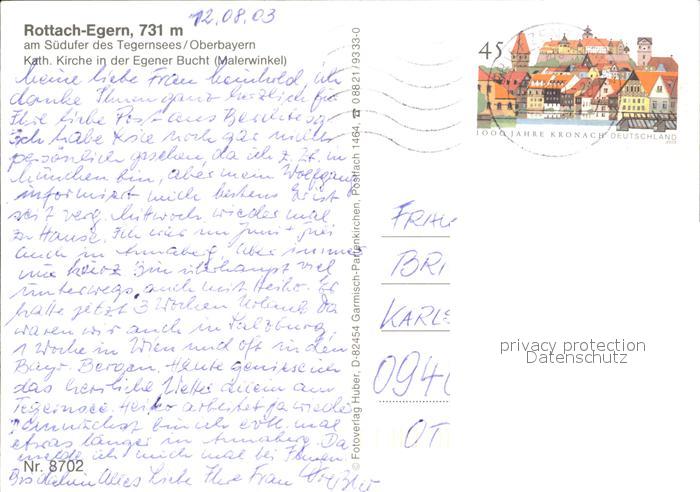 12.08.03
Rottach-Egern, 731 m
am Südufer des Tegernsees/Oberbayern
Kath. Kirche in der Egener Bucht (Malerwinkel)
Meine liebe Frau Meinhold, ich
danke Ihnen ganz herzlich für
Ihre liebe Post aus
Ich habe sie noch gar nicht
persönlich gesehen, da ich z. Zt. in
München bin, aber mein Wolfgang
informiert mich bestens. Er ist
seit verg. Mittwoch wieder mal
zu Hause. Ich war im Juni + Juli
auch in Annaberg, aber immer
nur kurz. Bin überhaupt viel
unterwegs, auch mit Heiko. Er
hatte jetzt 3 Wochen Urlaub. Da
waren wir auch in Salzburg,
1 Woche in Wien und oft in den
Bayr. Bergen. Heute genieße ich
das herrliche Wetter allein am
Tegernsee. Heiko arbeitet ja wieder.
Demnächst bin ich evtl. mal
etwas länger in Annaberg. Da
melde ich mich mal bei Ihnen.
Bis dahin Alles Liebe Ihre Frau
Nr. 8702
© Fotoverlag Huber, D-82454 Garmisch-Partenkirchen, Postfach 1464, ☎ 0 88 21/93 33-0
45
1000 JAHRE KRONACH DEUTSCHLAND
2003
FRAU
BRI
KARLS
094
OT
privacy protection
Datenschutz